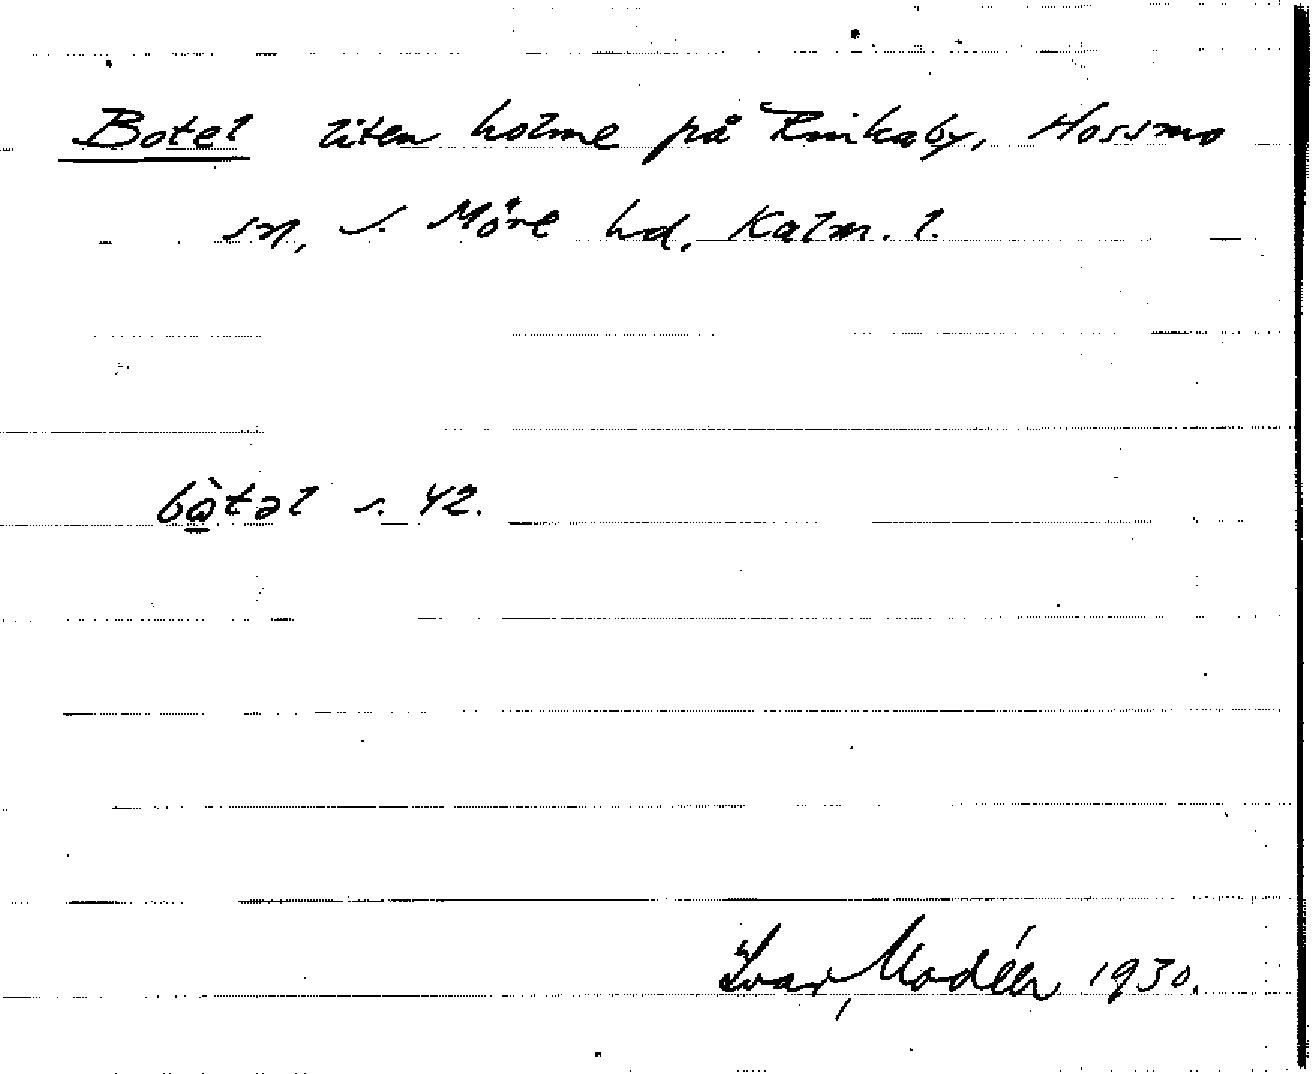 Botel liten holme på Rinkaby, Hossmo
sn, s. Möre hd, Kalm. l.
bò̱təl s. 42.
Ivar Modéer 1930.